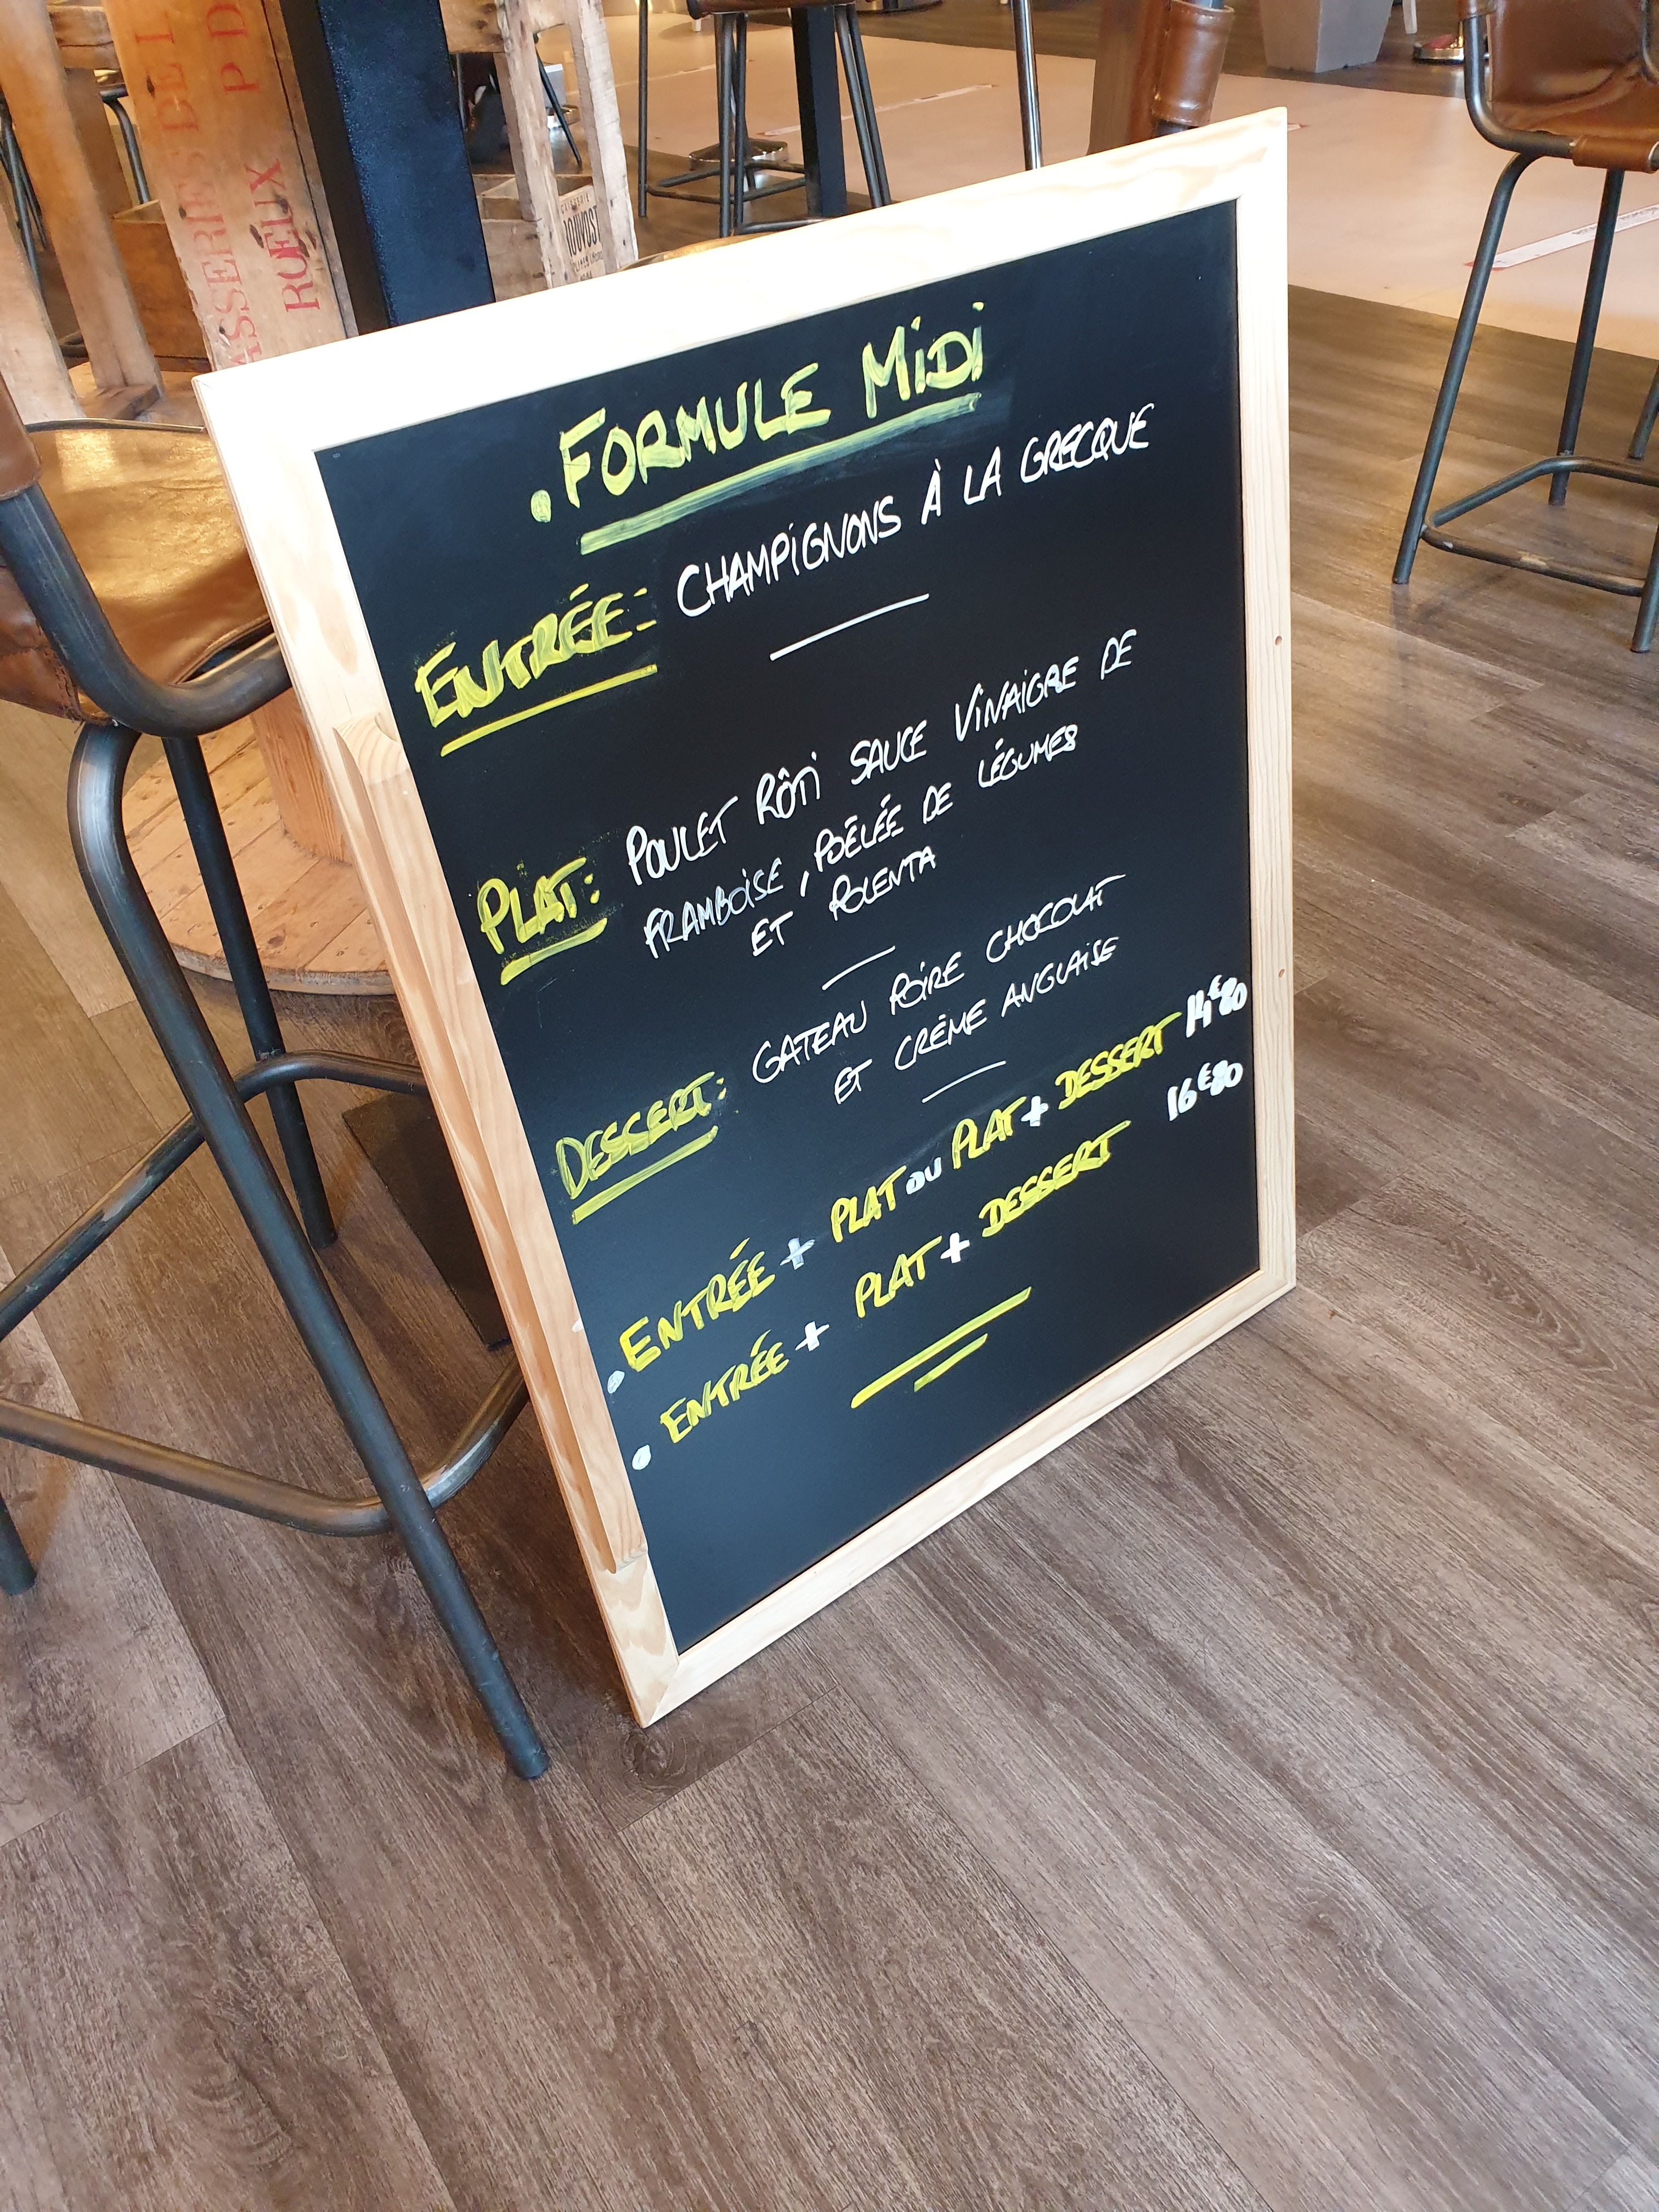 . FORMULE MiDi
ENTRÉE: CHAMPiGNONS À LA GRECQUE
PLAT: POULET RÔTi SAUCE ViNAiGRE DE
FRAMBOiSE, POÊLÉE DE LÉGUMES
ET POLENTA
DESSERT: GATEAU POiRE CHOCOLAT
ET CRÈME ANGLAiSE
. ENTRÉE + PLAT ou PLAT + DESSERT 14€80
. ENTRÉE + PLAT + DESSERT 16€80
ROEUX
P D